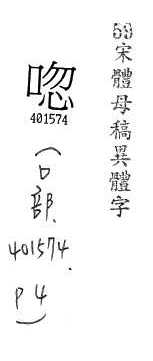 59宋體母稿異體字
唿
401574
(口部.
401574.
P4)